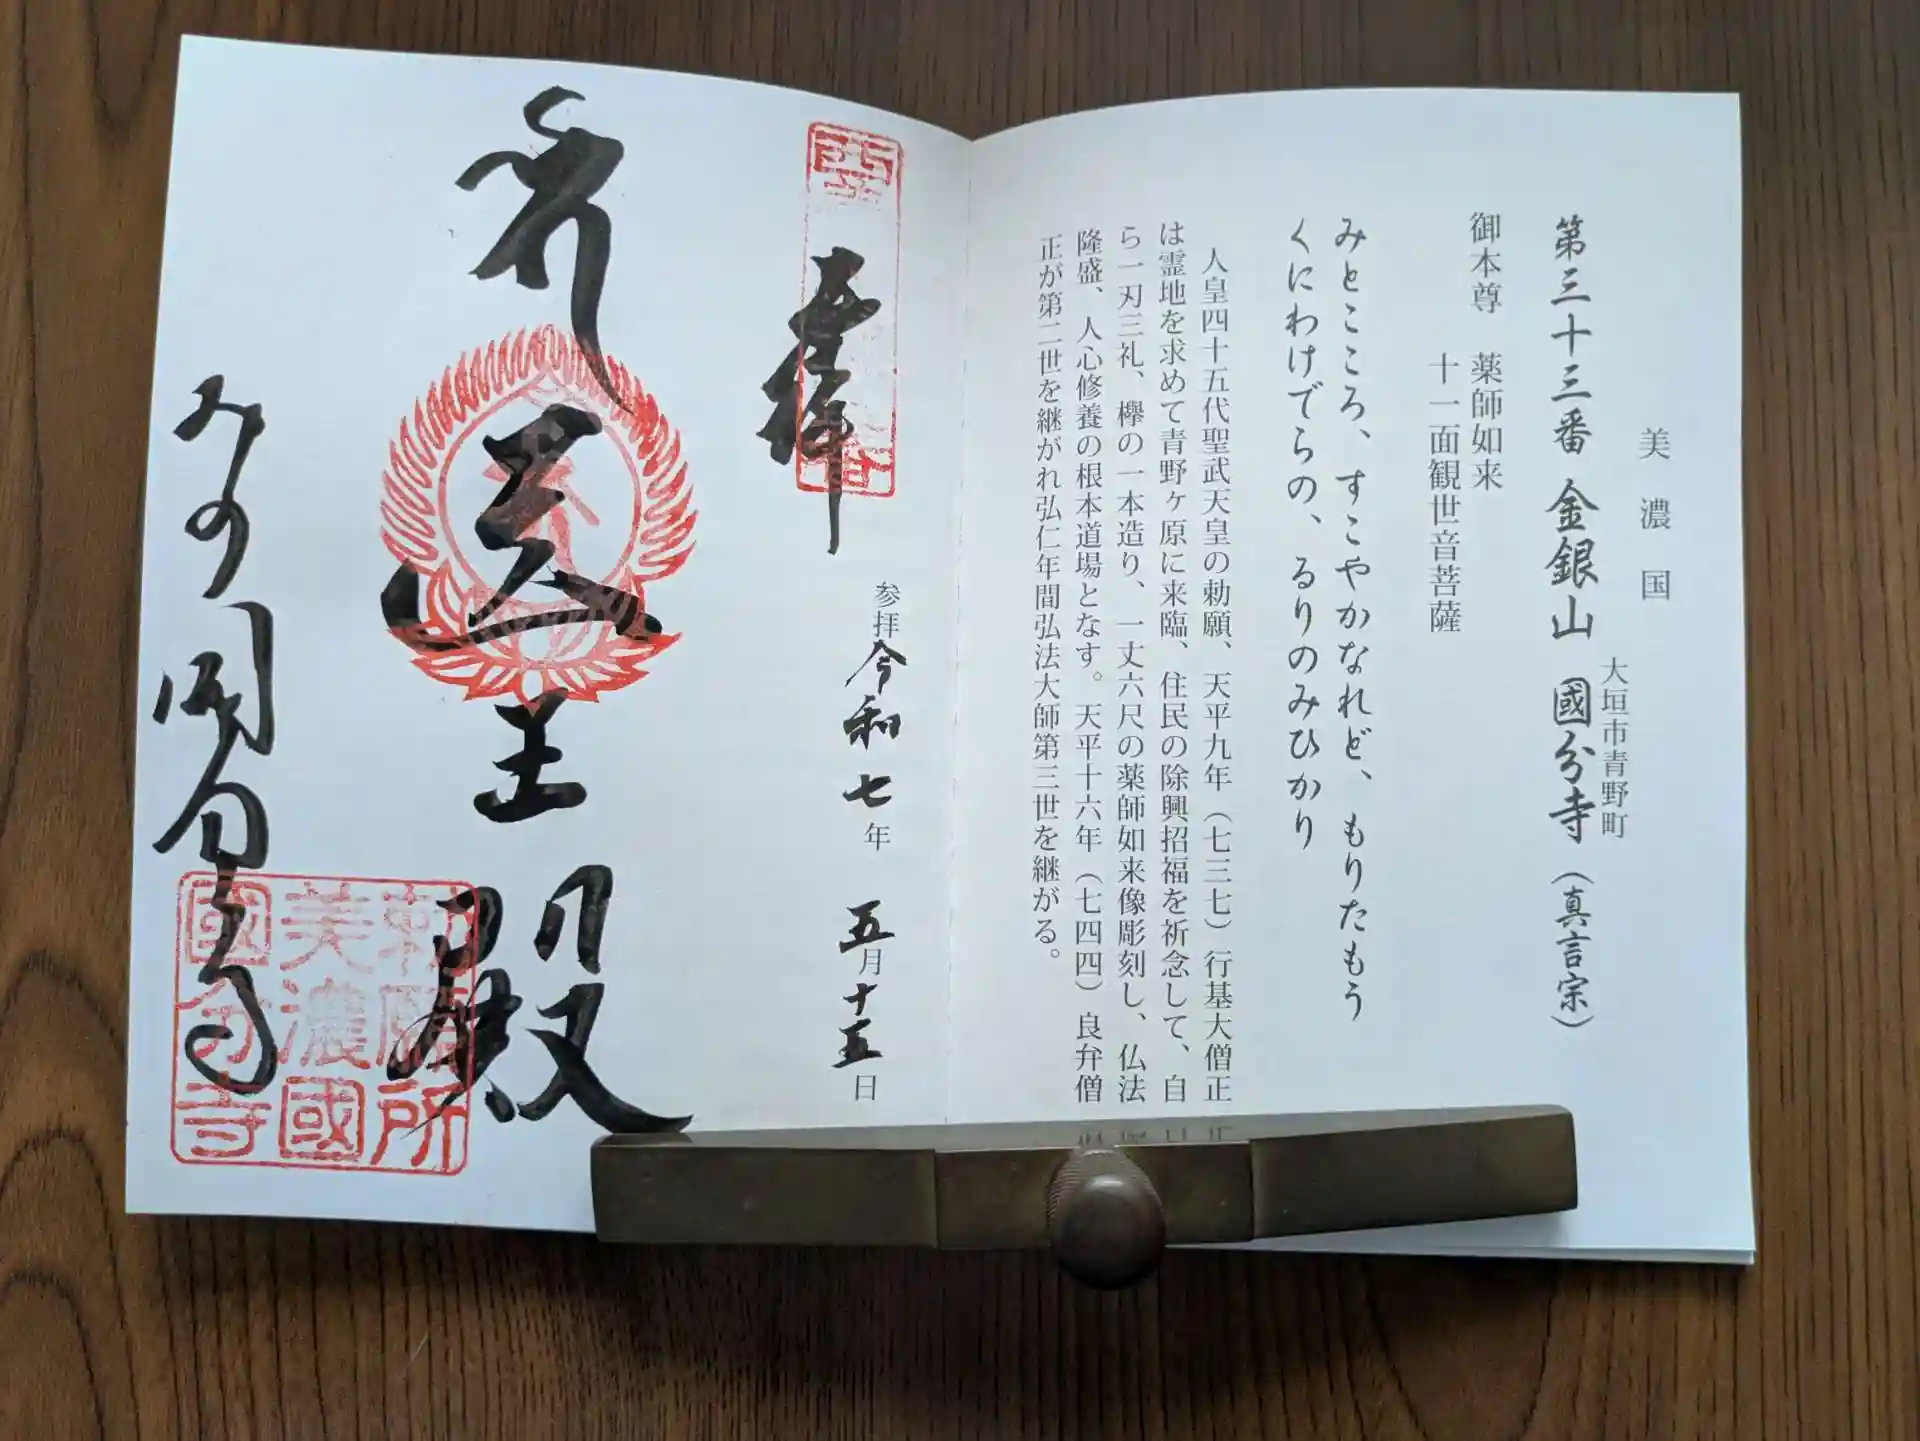 美濃国
大垣市青野町
第三十三番 金銀山 國分寺（真言宗）
御本尊 薬師如来
十一面観世音菩薩
みところ、すこやかなれど、もりたもう
くにわけでらの、るりのみひかり
人皇四十五代聖武天皇の勅願、天平九年（七三七）行基大僧正
は霊地を求めて青野ヶ原に来臨、住民の除興招福を祈念して、自
ら一刃三礼、欅の一本造り、一丈六尺の薬師如来像彫刻し、仏法
隆盛、人心修養の根本道場となす。天平十六年（七四四）良弁僧
正が第二世を継がれ弘仁年間弘法大師第三世を継がる。
奉拝
参拝令和七年 五月十五日
医王殿
みの国分寺
勅願所
美濃國
國分寺